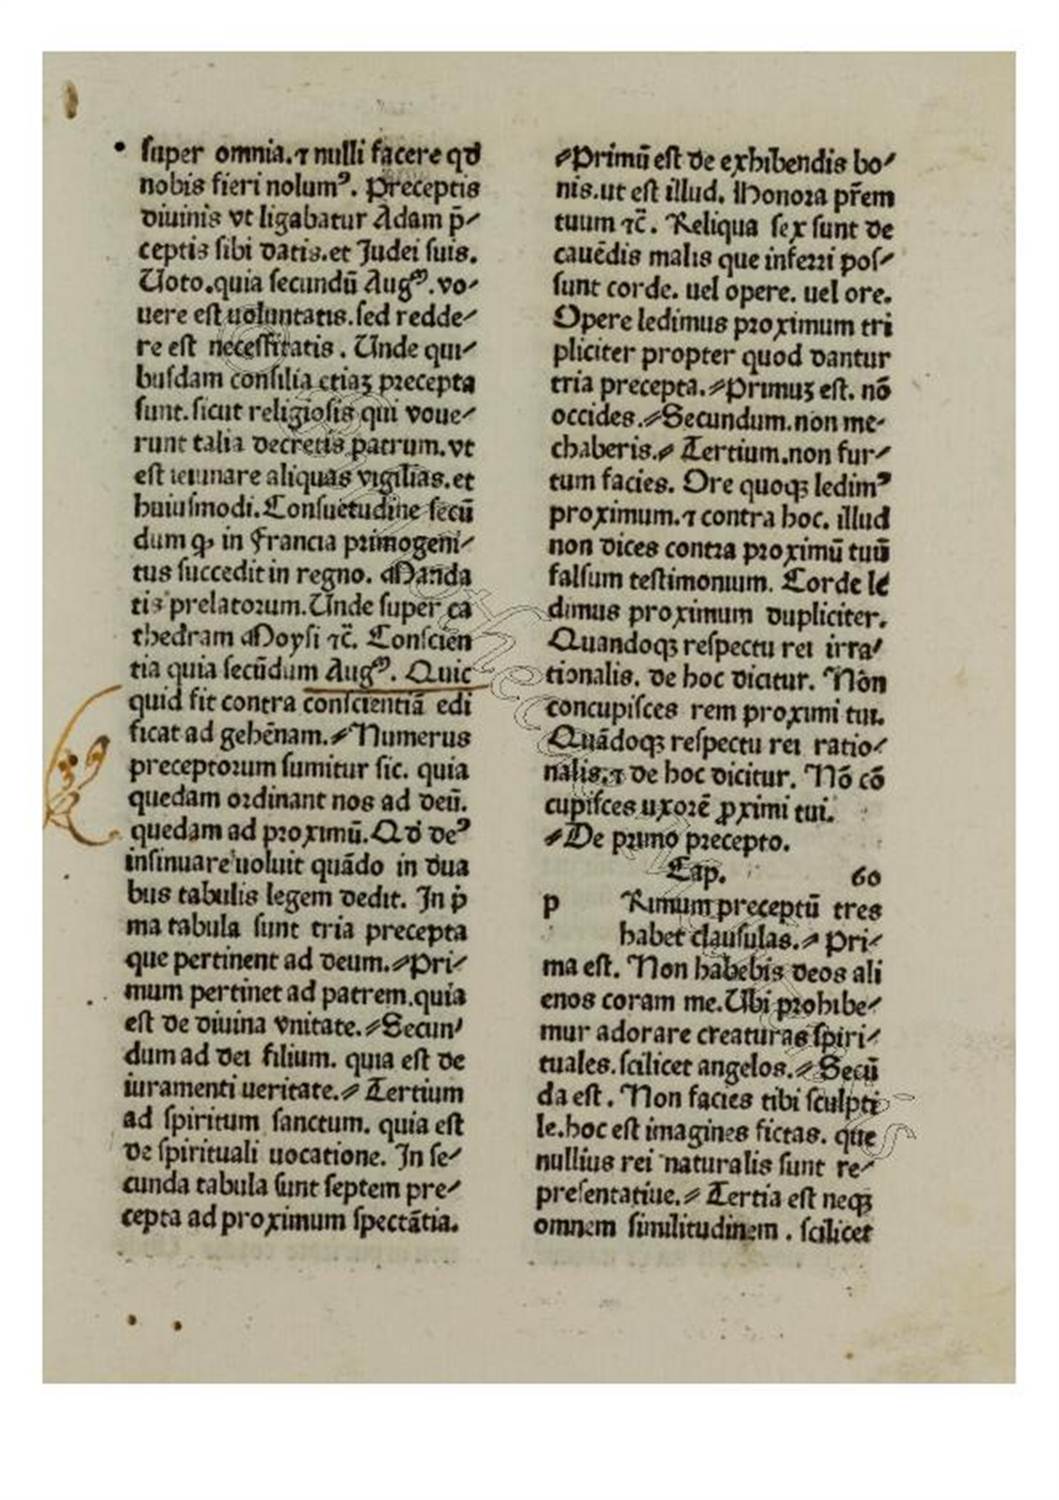 super omnia.⁊ nulli facere qd
nobis fieri nolumꝰ. Preceptis
diuinis vt ligabatur Adam p̄⸗
ceptis sibi datis.et Judei suis.
Uoto.quia secundū Augꝰ.vo⸗
uere est uoluntatis.sed redde⸗
re est necessitatis. Unde qui⸗
busdam consilia etiaꝫ precepta
sunt.sicut religiosis qui voue⸗
runt talia decretis patrum.vt
est ieiunare aliquas vigilias.et
huiusmodi.Consuetudine secū
dum ꝙ in Francia primogeni⸗
tus succedit in regno. Manda
tis prelatorum.Unde super ca
thedram Moysi ⁊c̄. Conscien
tia quia secūdum Augꝰ. Quic
quid fit contra conscientiā edi
ficat ad gehēnam.⸗Numerus
preceptorum sumitur sic. quia
quedam ordinant nos ad deū.
quedam ad proximū.Qd deꝰ
insinuare uoluit quādo in dua
bus tabulis legem dedit. In p̍
ma tabula sunt tria precepta
que pertinent ad deum.⸗Pri⸗
mum pertinet ad patrem.quia
est de diuina vnitate.⸗Secun⸗
dum ad dei filium. quia est de
iuramenti ueritate.⸗Tertium
ad spiritum sanctum. quia est
de spirituali uocatione. In se⸗
cunda tabula sunt septem pre⸗
cepta ad proximum spectātia.
⸗Primū est de exhibendis bo⸗
nis.ut est illud. Honora p̄rem
tuum ⁊c̄. Reliqua sex sunt de
cauēdis malis que inferri pos⸗
sunt corde. uel opere. uel ore.
Opere ledimus proximum tri
pliciter propter quod dantur
tria precepta.⸗Primuꝫ est. nō
occides.⸗Secundum.non me⸗
chaberis.⸗Tertium.non fur⸗
tum facies. Ore quoqꝫ ledimꝰ
proximum.⁊ contra hoc. illud
non dices contra proximū tuū
falsum testimonium. Corde le
dimus proximum dupliciter.
Quandoqꝫ respectu rei irra⸗
tionalis. de hoc dicitur. Non
concupisces rem proximi tui.
Quādoqꝫ respectu rei ratio⸗
nalis.⁊ de hoc dicitur. Nō cō
cupisces uxorē ꝓximi tui.
⸗De primo precepto.
Cap. 60
p Rimum preceptū tres
habet clausulas.⸗Pri⸗
ma est. Non habebis deos ali
enos coram me.Ubi prohibe⸗
mur adorare creaturas spiri⸗
tuales.scilicet angelos.⸗Secū
da est. Non facies tibi sculpti
le.hoc est imagines fictas. que
nullius rei naturalis sunt re⸗
presentatiue.⸗Tertia est neqꝫ
omnem similitudinem. scilicet